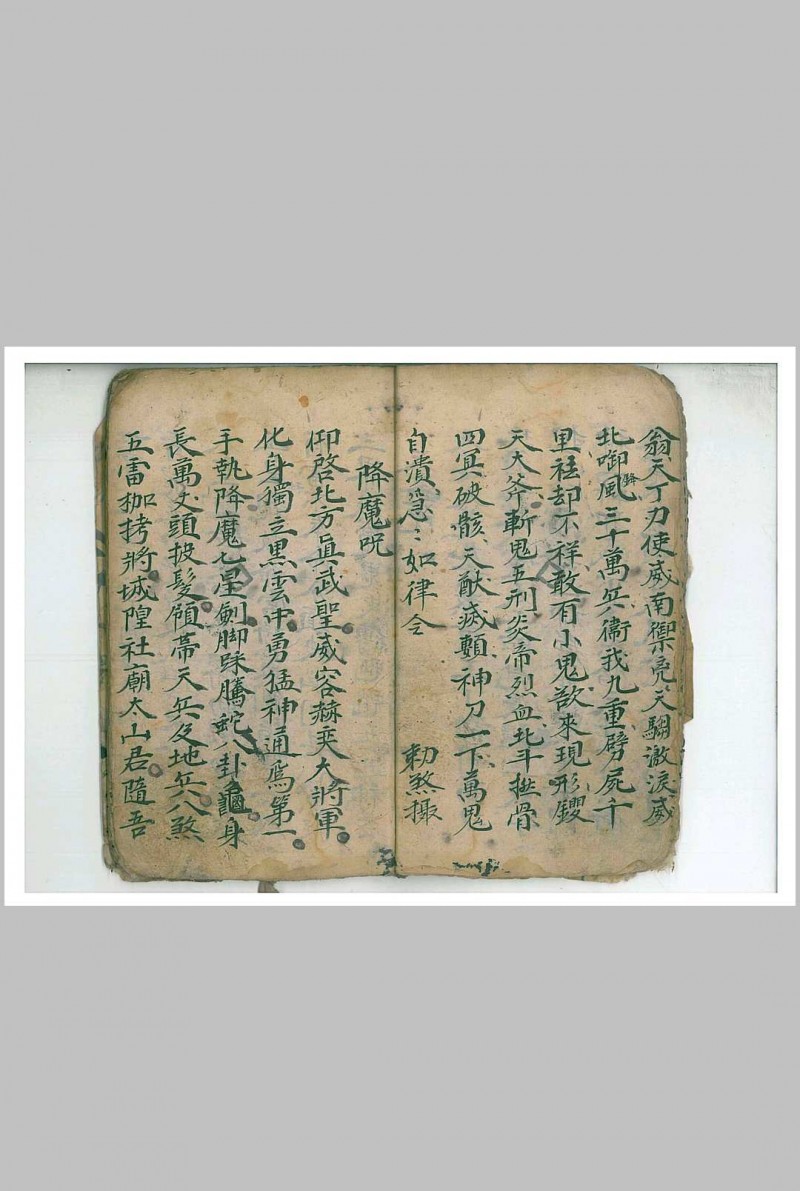 翁天丁力使威南禦亮天騶激淚威
北啣風三十萬兵衞我九重劈屍千
里祛却不祥敢有小鬼欲來現形钁
天大斧斬鬼五刑炎帝烈血北斗㩼骨
四冥破骸天猷㓕𩔖神刀一下萬鬼
自潰急〻如律令 勅煞攝
降魔呪
仰啓北方眞武聖威容赫奕大將軍
化身獨立黑雲中勇猛神通爲第一
手執降魔七星劍脚跺騰蛇八卦龜身
長萬丈頭披髮領帶天兵及地兵八煞
五雷枷拷將城隍社廟太山君隨吾